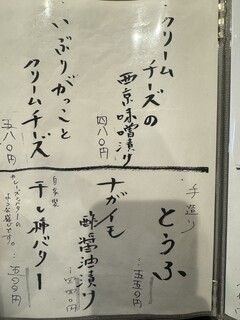 クリームチーズの
西京味噌漬り
四八〇円
いぶりがっこと
クリームチーズ
五八〇円
手造り
とうふ
五五〇円
ナガイモ
酢醤油漬り
四四〇円
自家製
干し柿バター
五〇〇円